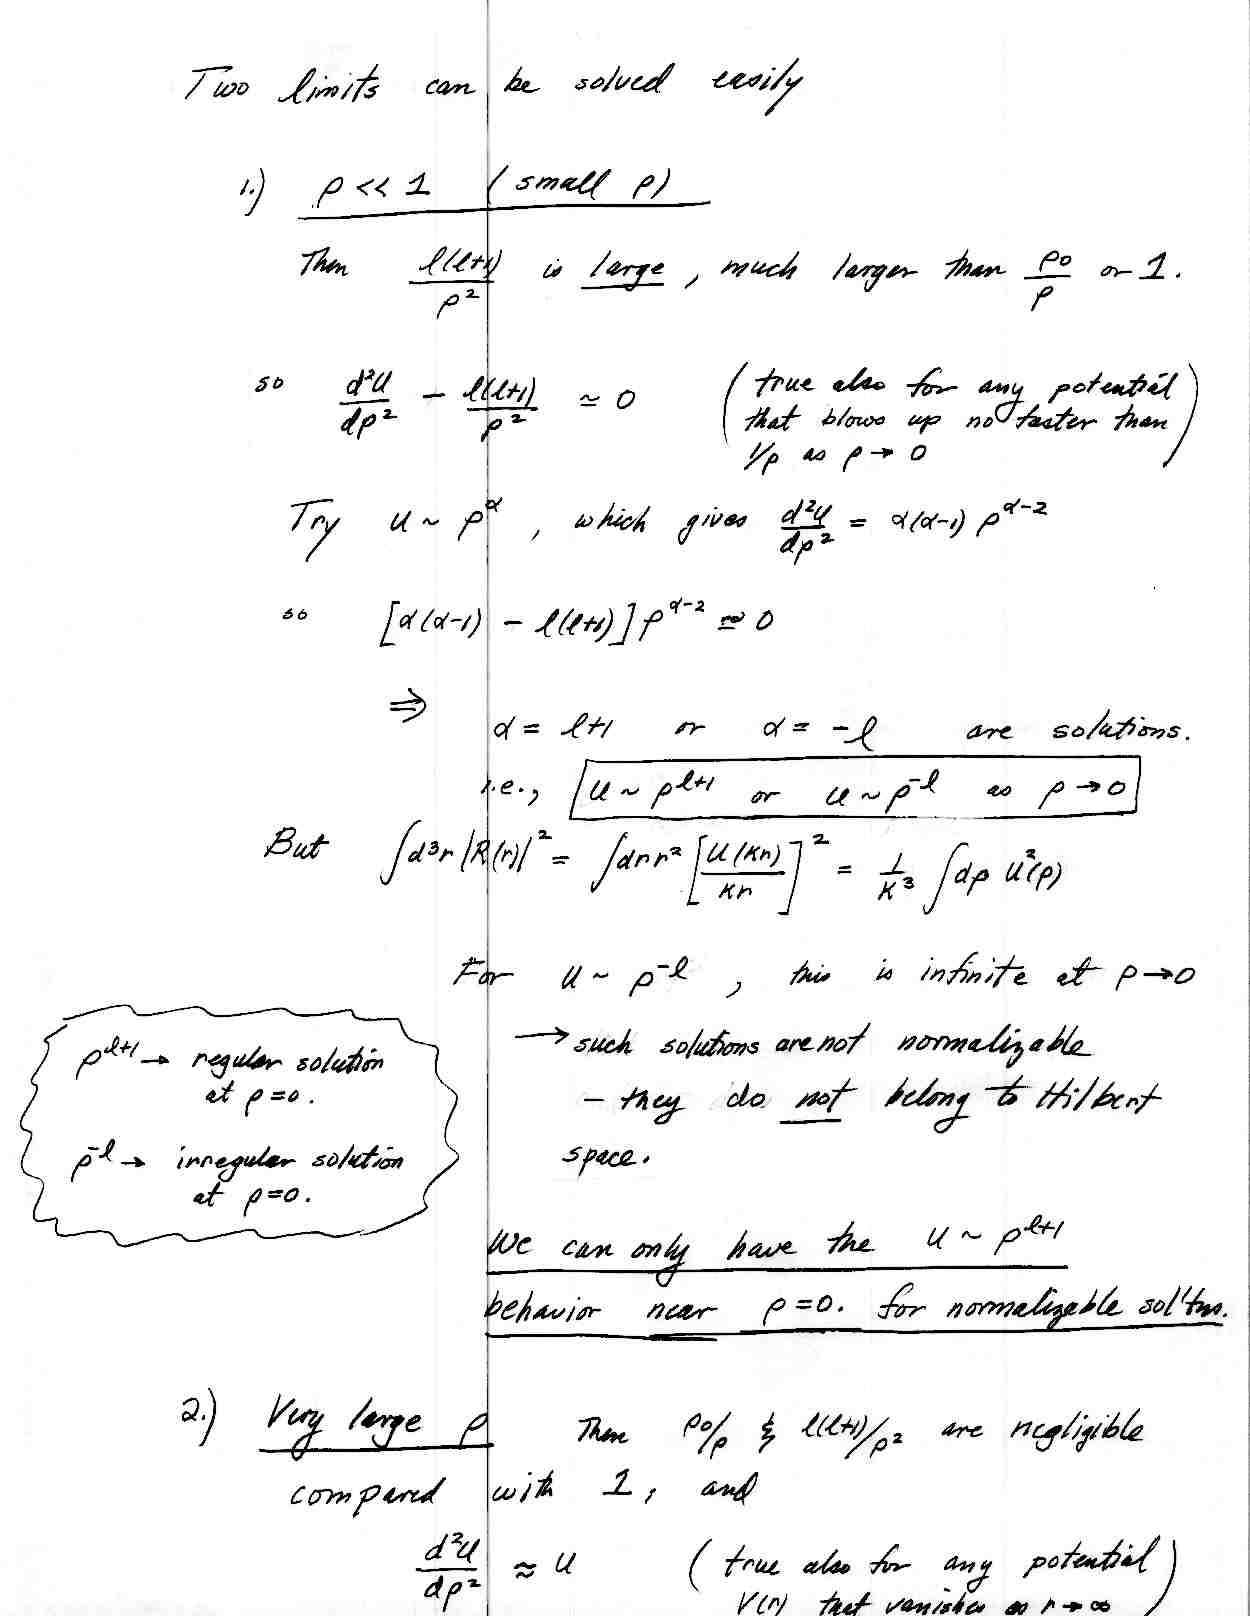 Two limits can be solved easily
1.) ρ << 1 (small ρ)
Then l(l+1)/ρ² is large, much larger than ρ₀/ρ or 1.
so d²u/dρ² − l(l+1)/ρ² ≃ 0 (true also for any potential
that blows up no faster than
1/ρ as ρ → 0)
Try u ~ ρ^α, which gives d²u/dρ² = α(α−1) ρ^(α−2)
so [α(α−1) − l(l+1)] ρ^(α−2) ≃ 0
⇒
α = l+1 or α = −l are solutions.
i.e., u ~ ρ^(l+1) or u ~ ρ^(−l) as ρ → 0
But ∫d³r |R(r)|² = ∫dr r² [u(κr)/κr]² = 1/κ³ ∫dρ u²(ρ)
For u ~ ρ^(−l), this is infinite at ρ → 0
→ such solutions are not normalizable
− they do not belong to Hilbert
space.
ρ^(l+1) → regular solution
at ρ=0.
ρ^(−l) → irregular solution
at ρ=0.
We can only have the u ~ ρ^(l+1)
behavior near ρ=0. for normalizable sol'tns.
2.) Very large ρ Then ρ₀/ρ & l(l+1)/ρ² are negligible
compared with 1, and
d²u/dρ² ≈ u (true also for any potential
V(r) that vanishes as r → ∞)